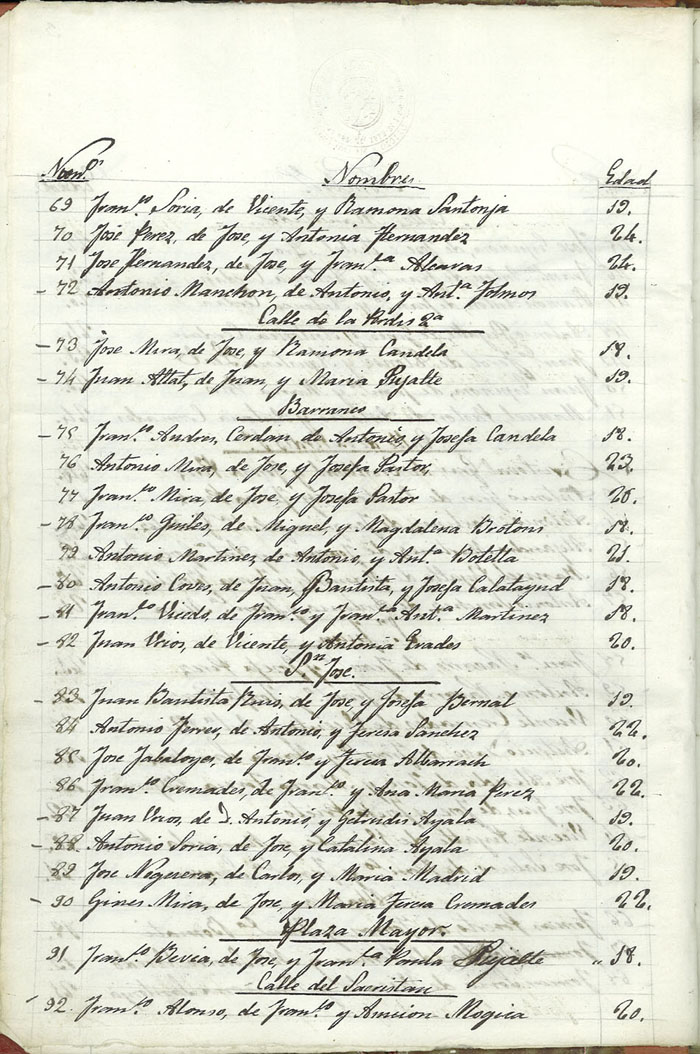 Num.s Nombres Edad
69 Fran.co Soria, de Vicente, y Ramona Santonja 19.
70 José Perez, de Jose, y Antonia Hernandez 24.
71 Jose Hernandez, de Jose, y Fran.ca Alcaras 24.
- 72 Antonio Manchon, de Antonio, y Ant.a Tolmos 19.
Calle de la
- 73 Jose Mira, de Jose, y Ramona Candela 18.
- 74 Juan Attat, de Juan, y Maria Pujalte 19.
Barranco
- 75 Fran.co Andres, Cerdan de Antonio, y Josefa Candela 18.
76 Antonio Mira, de Jose, y Josefa Pastor, 23.
77 Fran.co Mira, de Jose, y Josefa Pastor 20.
- 78 Fran.co Guiles, de Miguel, y Magdalena Brotons 18.
79 Antonio Martinez, de Antonio, y Ant.a Botella 21.
- 80 Antonio Coves, de Juan, Bautista, y Josefa Calatayud 18.
- 81 Fran.co Viedo, de Fran.co y Fran.ca Ant.a Martinez 18.
- 82 Juan Vrios, de Vicente, y Antonia Grades 20.
S.n Jose.
- 83 Juan Bautista Ruis, de Jose, y Josefa Bernal 19.
84 Antonio Ferres, de Antonio, y Teresa Sanchez 22.
85 Jose Jabaloyes, de Fran.co y Teresa Albarrach 20.
86 Fran.co Cremades, de Fran.co y Ana Maria Perez 22.
- 87 Juan Vrios, de D. Antonio, y Getrudis Ayala 19.
- 88 Antonio Soria, de Jose, y Catalina Ayala 20.
89 Jose Noguera, de Carlos, y Maria Madrid 19.
- 90 Gines Mira, de Jose, y Maria Teresa Cremades 22.
Plaza Mayor.
91 Fran.co Bevia, de Jose, y Fran.ca Paula Pujalte 18.
Calle del Sacristan
- 92. Fran.co Alonso, de Fran.co y Asuncion Mogica 20.